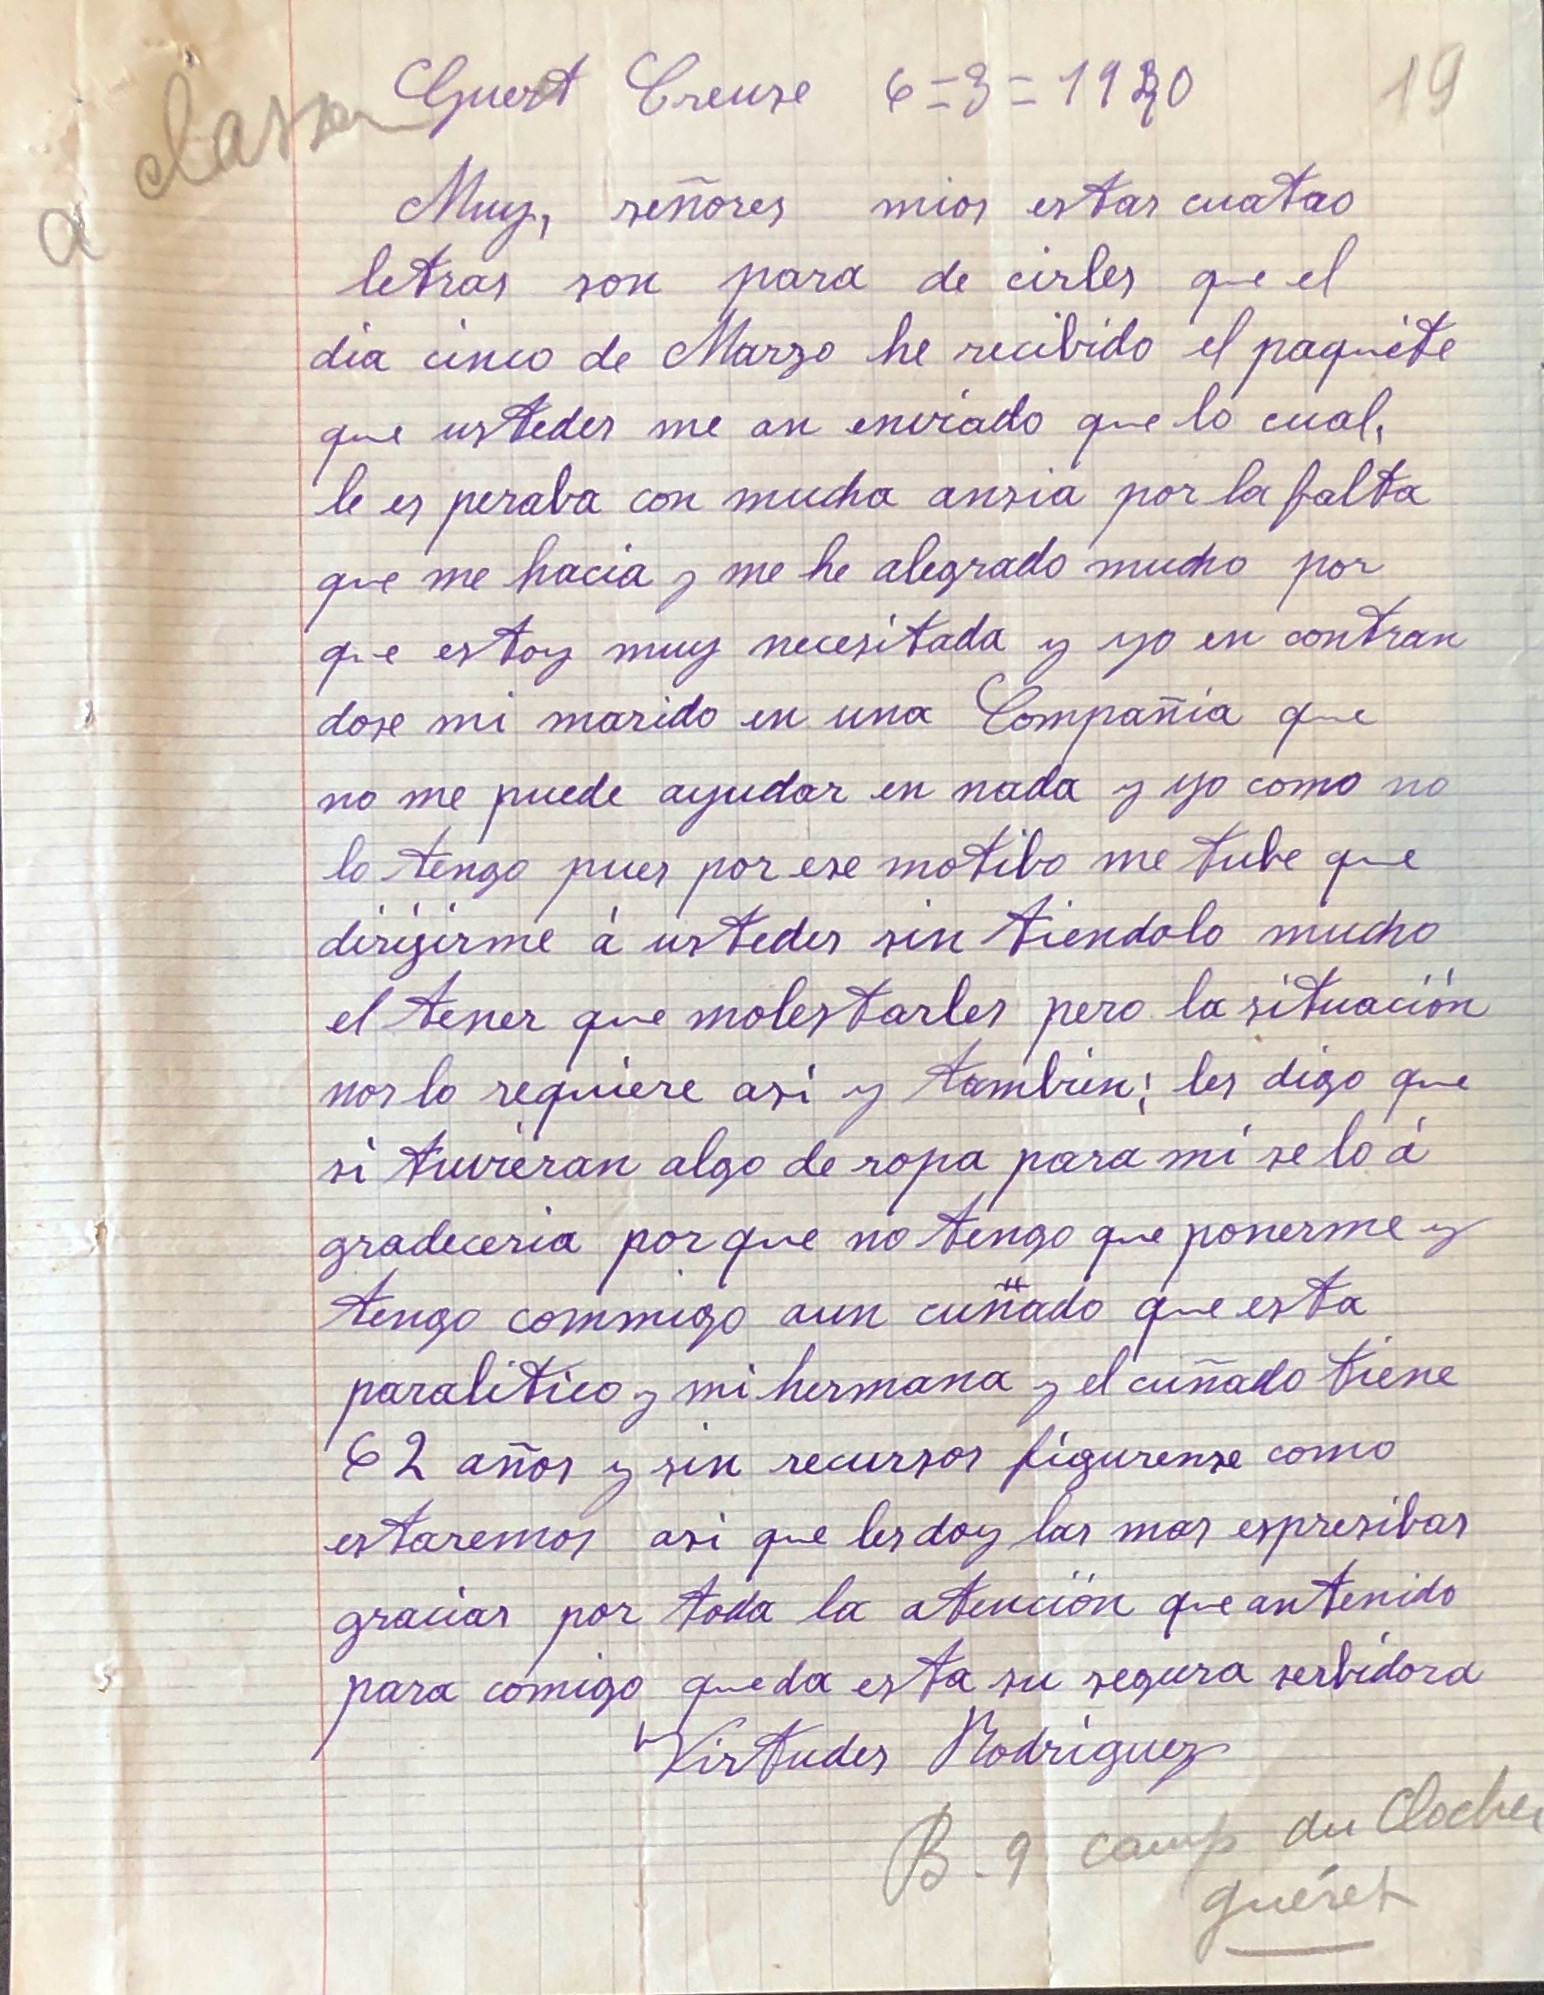 Guert Creuse 6=3=1940
19
a classer
Muy, señores mios estas cuatao
letras son para de cirles que el
dia cinco de Marzo he recibido el paquete
que ustedes me an enviado que lo cual,
le es peraba con mucha ansia por la falta
que me hacia y me he alegrado mucho por
que estoy muy necesitada y yo en contran
dose mi marido en una Compañia que
no me puede ayudar en nada y yo como no
lo tengo pues por ese motibo me tube que
dirigirme á ustedes sin tiendolo mucho
el tener que molestarles pero la situación
nos lo requiere asi y tambien; les digo que
si tuvieran algo de ropa para mi se lo á
gradeceria por que no tengo que ponerme y
tengo commigo aun cuñado que esta
paralitico y mi hermana y el cuñado tiene
62 años y sin recursos figurense como
estaremos asi que les doy las mas espresibas
gracias por toda la atención que an tenido
para comigo queda esta su segura serbidora
Virtudes Rodriguez
B-9 camp du Clocher
guéret